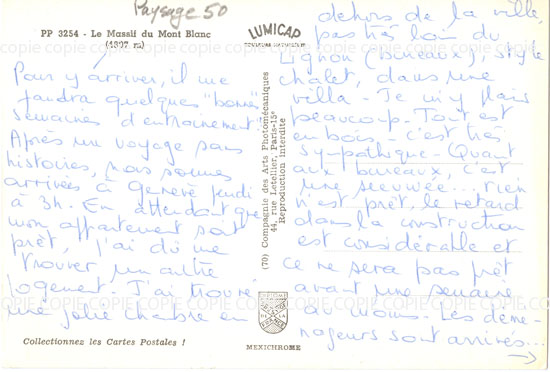 Paysage 50
PP 3254 - Le Massif du Mont Blanc
(4807 m)
Pour y arriver, il me
faudra quelques "bonnes"
semaines d'entrainement
Après un voyage sans
histoires, nous sommes
arrivés à Genève jeudi
à 3h. En attendant que
mon appartement soit
prêt, j'ai dû me
trouver un autre
logement. J'ai trouvé
une jolie chambre en
Collectionnez les Cartes Postales !
LUMICAD
(70) Compagnie des Arts Photomécaniques
44, rue Letellier, Paris-15e
Reproduction interdite
MEXICHROME
dehors de la ville,
pas très loin du
Lignon (bureaux), style
chalet, dans une
villa - Je m'y plais
beaucoup. Tout est
en bois - c'est très
sympathique. Quant
aux bureaux, c'est
une rien
n'est prêt, le retard
dans la construction
est considérable et
ce ne sera pas prêt
avant une semaine
au moins. Les démé-
nageurs sont arrivés...
COPIE COPIE COPIE COPIE COPIE COPIE